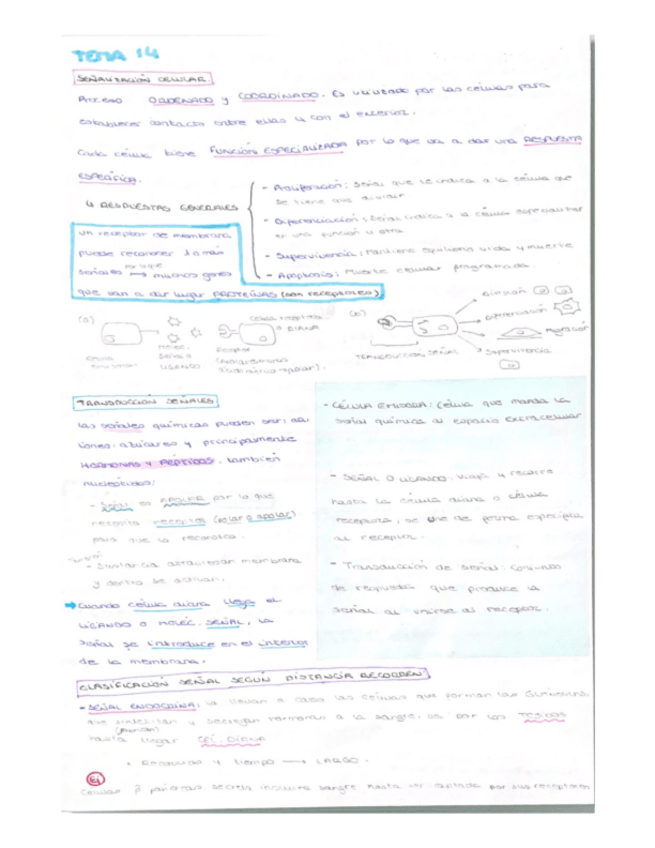 TEMA 14
SEÑALIZACIÓN CELULAR
Proceso ORDENADO y COORDINADO. Es utilizado por las células para
establecer contactos entre ellas y con el exterior.
Cada célula tiene FUNCIÓN ESPECIALIZADA por lo que va a dar una RESPUESTA
ESPECÍFICA.
4 RESPUESTAS GENERALES
- Proliferación: Señal que le indica a la célula que
se tiene que dividir.
- Diferenciación: Señal indica a la célula especializar
en una función u otra
- Supervivencia: Mantiene equilibrio vida y muerte
- Apoptosis: Muerte celular programada.
Un receptor de membrana
puede reconocer 1 o más
señales → muchos genes
que van a dar lugar PROTEÍNAS (son receptores)
(a)
Célula receptora
o DIANA
molec.
Señal o
LIGANDO
Receptor
(b)
División
Diferenciación
Migración
Supervivencia
TRANSDUCCIÓN SEÑAL
TRANSDUCCIÓN SEÑALES
Las señales químicas pueden ser:
iones, azúcares y principalmente
HORMONAS Y PÉPTIDOS, también
nucleótidos:
- Señal es APOLAR por lo que
necesita receptor (polar o apolar)
para que la reconozca.
- Sustancia atraviesan membrana
y dentro se activan.
→ Cuando célula diana llega el
LIGANDO o MOLÉC. SEÑAL, la
señal se introduce en el interior
de la membrana.
- CÉLULA EMISORA: Célula que manda la
señal química al espacio extracelular
- SEÑAL O LIGANDO: viaja y recorre
hasta la célula diana o célula
receptora, se une de forma específica
al receptor.
- Transducción de señal: Conjunto
de respuesta que produce la
señal al unirse al receptor.
CLASIFICACIÓN SEÑAL SEGÚN DISTANCIA RECORREN
- SEÑAL ENDOCRINA: la llevan a cabo las células que forman las GLÁNDULAS
que sintetizan y secretan hormonas a la sangre, va por los TEJIDOS
hasta llegar CÉL. DIANA
• Recorrido y tiempo → LARGO.
Ej
Células β páncreas secreta insulina sangre hasta ser captada por sus receptores